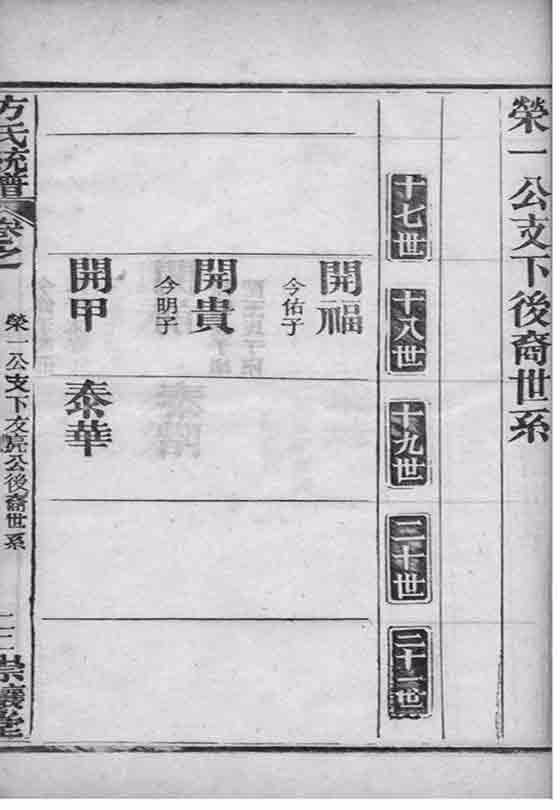 榮一公支下後裔世系
十七世
十八世
十九世
二十世
二十一世
開福
今佑子
開貴
今明子
開甲
泰華
方氏統譜
卷之一
榮一公支下友亮公後裔世系
崇讓堂